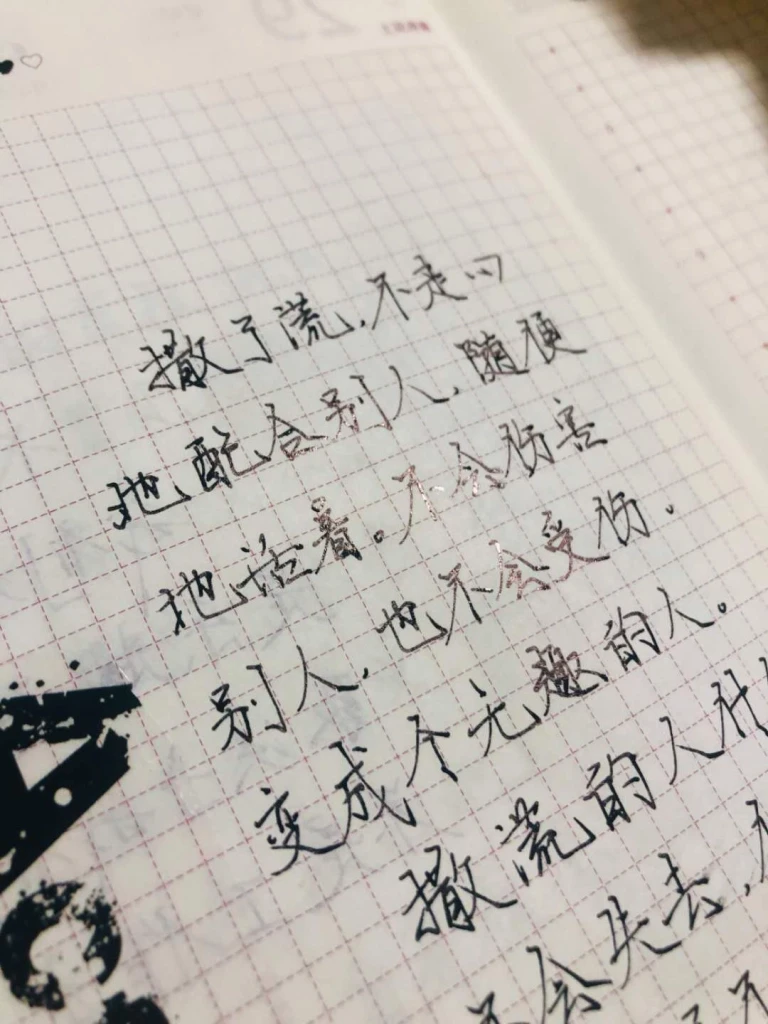 29
撒了谎,不走心
地配合别人,随便
地活着。不会伤害
别人,也不会受伤.
变成个无趣的人。
撒谎的人
不会失去,
AC